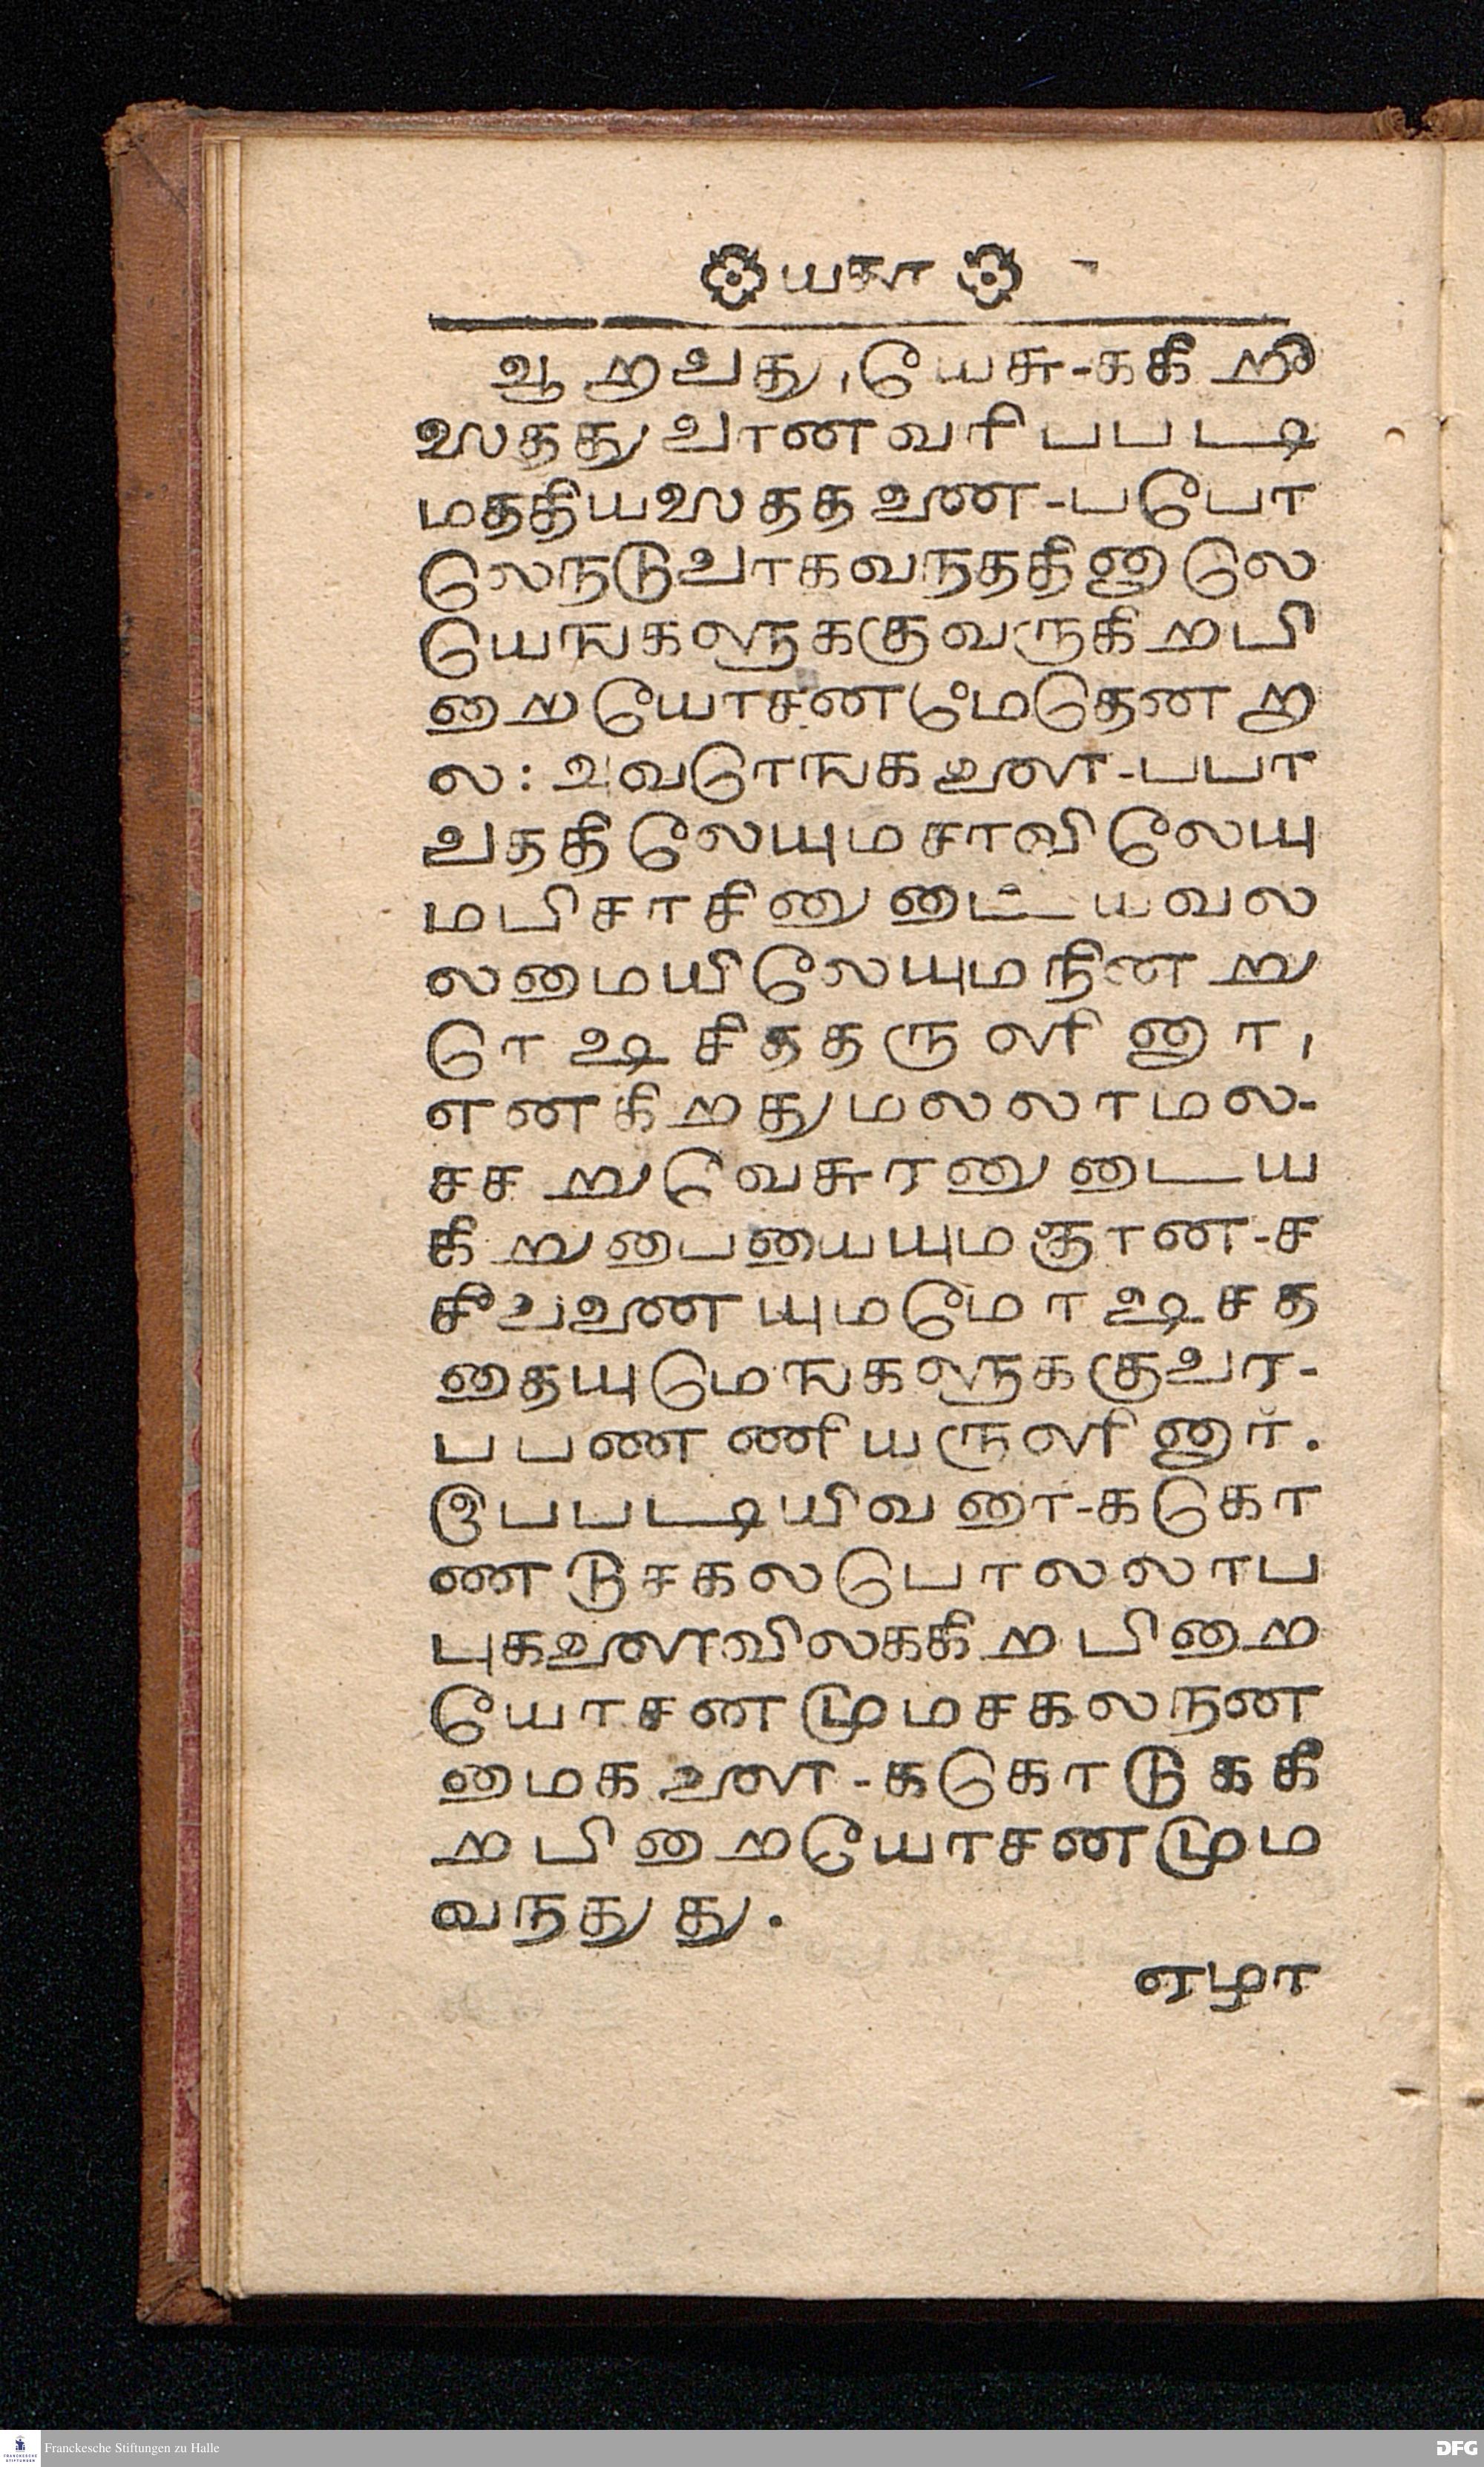 யகா
ஆறவது, யேசு-ககிறீ
ஸதது வானவரிபபடி
மததியஸததணை-பபோ
லேநடுவாகவநததினாலெ
யெஙகளுககுவருகிறபி
றையோசனமேமெதெனற
ல: அவரொஙகளை-பபா
வததிலேயுமசாவிலேயு
மபிசாசினுடைடயவல
லமையிலேயுமநினறு
ரெஷசிததருளினா,
எனகிறதுமலலாமல-
சசறுவெசுரனுடைய
கிறுபையையுமஞான-ச
சீவணையுமமோஷசத
தையுமெஙகளுககுவர-
பபணணியருளினார்.
இபேபடியிவரை-ககொ
ணடுசகலபொலலாப
புகளைவிலககிறபிறை
யோசனமுமசகலநன
மைகளை-ககொடுககி
றபிறையோசனமும
வநதுது.
ஏழா
Franckesche Stiftungen zu Halle
DFG